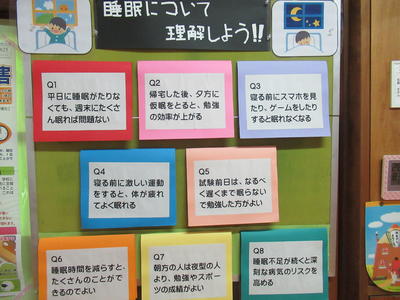 睡眠について
理解しよう!!
Q1
平日に睡眠がたりな
くても、週末にたくさ
ん眠れば問題ない
Q2
帰宅した後、夕方に
仮眠をとると、勉強
の効率が上がる
Q3
寝る前にスマホを見
たり、ゲームをしたり
すると眠れなくなる
Q4
寝る前に激しい運動
をすると、体が疲れ
てよく眠れる
Q5
試験前日は、なるべ
く遅くまで眠らない
で勉強した方がよい
Q6
睡眠時間を減らすと、
たくさんのことがで
きるのでよい
Q7
朝方の人は夜型の人
より、勉強やスポー
ツの成績がよい
Q8
睡眠不足が続くと深
刻な病気のリスクを
高める